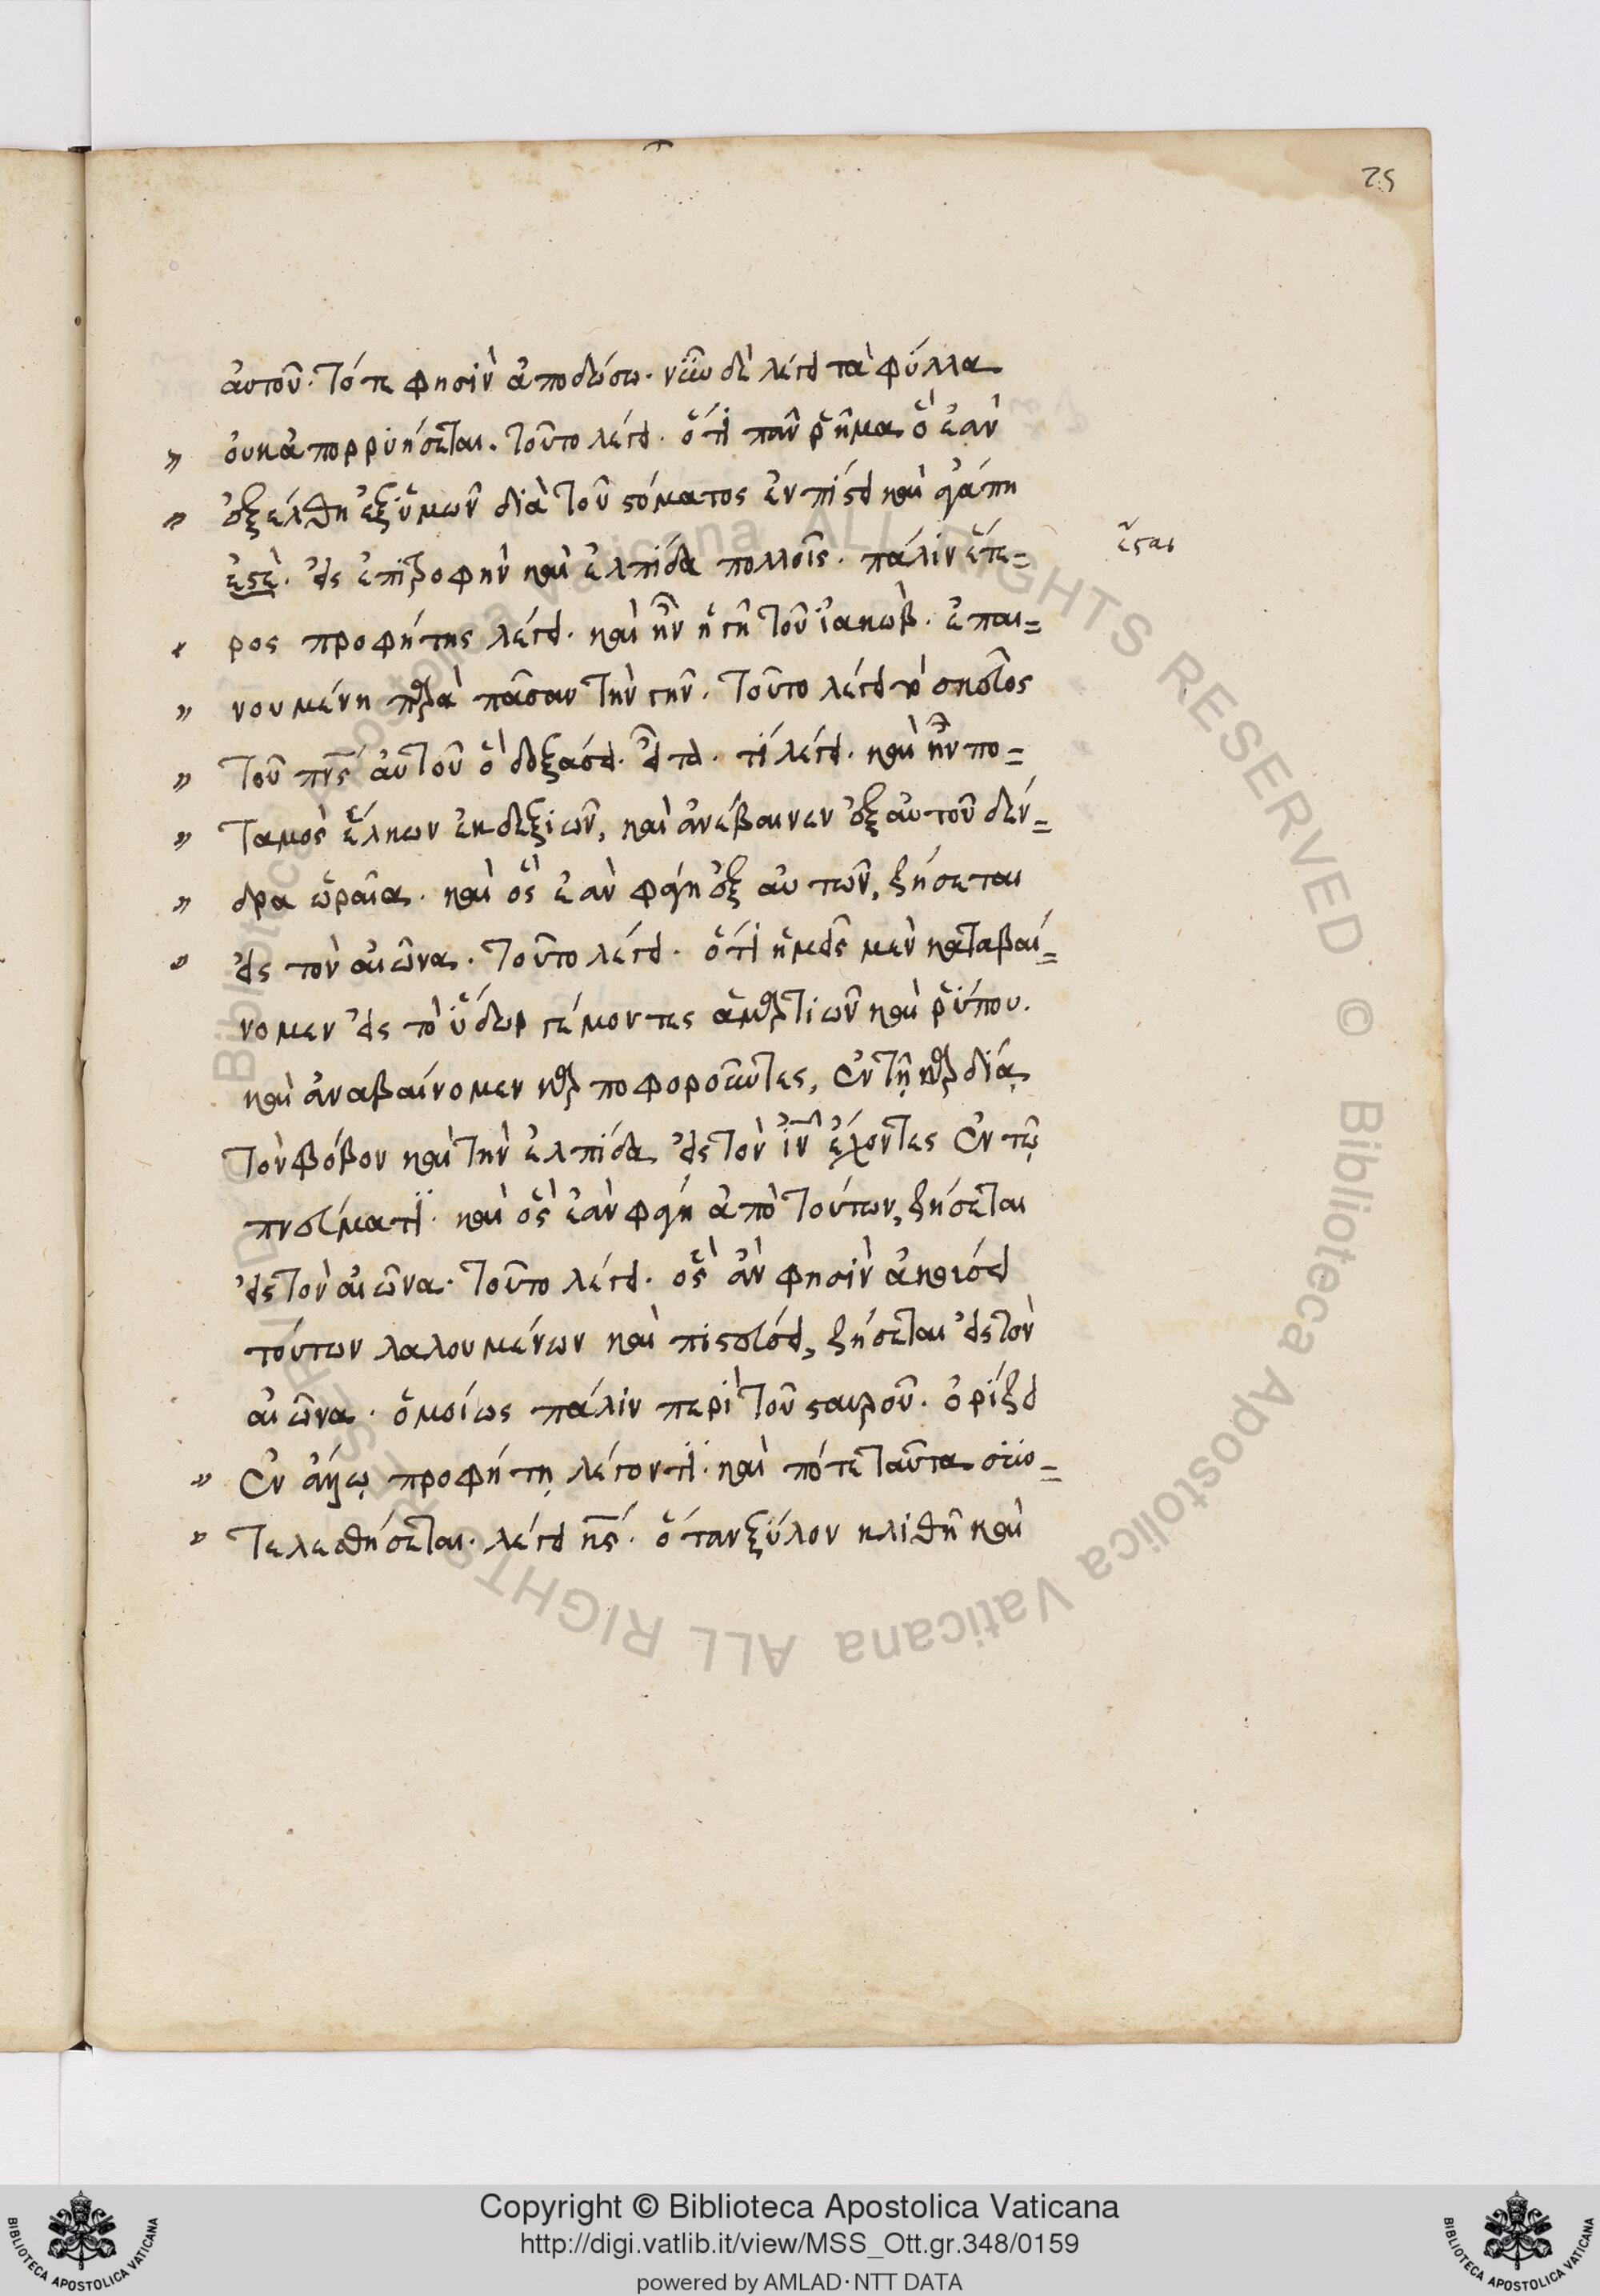 25
αὐτοῦ· τότε φησὶν ἀποδώσω· νῦν δὲ λέγει τὰ φύλλα
οὐκ ἀπορρυήσεται. τοῦτο λέγει· ὅτι πᾶν ῥῆμα ὃ ἐὰν
ἐξέλθη ἐξ ὑμῶν διὰ τοῦ στόματος ἐν πίστει καὶ ἀγάπη
ἐστὲ· εἰς ἐπιστροφὴν καὶ ἐλπίδα πολλοῖς· πάλιν ἕτε=
ἔσται
ρος προφήτης λέγει· καὶ ἦν ἡ γῆ τοῦ ἰακὼβ· ἐπαι=
νουμένη παρὰ πᾶσαν τὴν γῆν· τοῦτο λέγει τὸ σκεῦος
τοῦ πνς αὐτοῦ ὃ δοξάσει· εἶτα· τί λέγει· καὶ ἦν πο=
ταμὸς ἕλκων ἐκ δεξιῶν, καὶ ἀνέβαινεν ἐξ αὐτοῦ δέν=
δρα ὡραῖα· καὶ ὃς ἐὰν φάγη ἐξ αὐτῶν, ζήσεται
εἰς τὸν αἰῶνα· τοῦτο λέγει· ὅτι ἡμεῖς μὲν καταβαί=
νομεν εἰς τὸ ὕδωρ γέμοντες ἁμαρτιῶν καὶ ῥύπου·
καὶ ἀναβαίνομεν καρποφοροῦντες, ἐν τῇ καρδίᾳ
τὸν φόβον καὶ τὴν ἐλπίδα εἰς τὸν ἰν ἔχοντες ἐν τῷ
πνεύματι· καὶ ὃς ἐὰν φάγη ἀπὸ τούτων, ζήσεται
εἰς τὸν αἰῶνα· τοῦτο λέγει· ὃς ἂν φησὶν ἀκούσει
τούτων λαλουμένων καὶ πιστεύσει, ζήσεται εἰς τὸν
αἰῶνα· ὁμοίως πάλιν περὶ τοῦ σταυροῦ· ὁρίζει
ἐν ἄλλῳ προφήτῃ λέγοντι· καὶ πότε ταῦτα συν=
τελεσθήσεται· λέγει κς· ὅταν ξύλον κλιθῆ καὶ
Copyright © Biblioteca Apostolica Vaticana
http://digi.vatlib.it/view/MSS_Ott.gr.348/0159
powered by AMLAD·NTT DATA
BIBLIOTECA APOSTOLICA VATICANA
BIBLIOTECA APOSTOLICA VATICANA